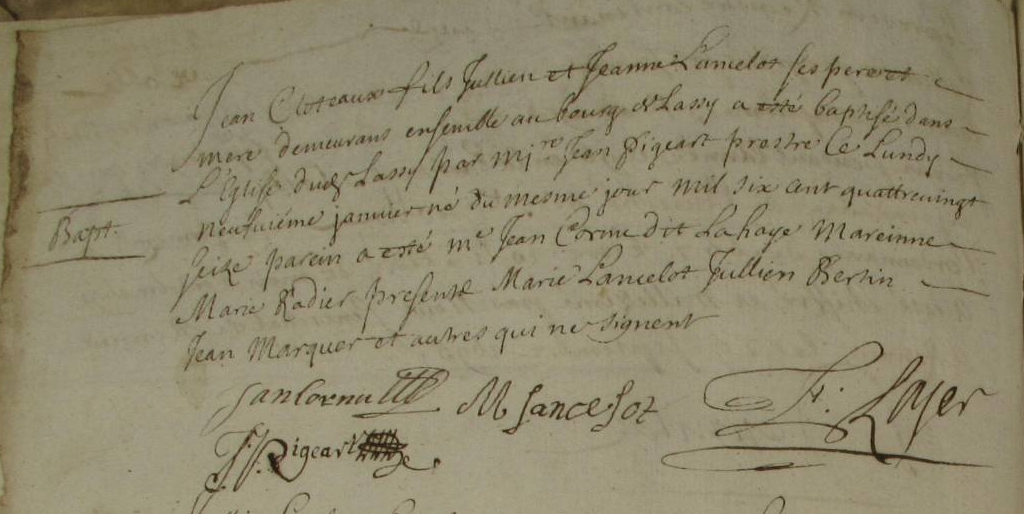 Jean Cloteaux fils Jullien et Jeanne Lancelot ses pere et
mere demeurans ensemble au bourg de Lassy a esté baptisé dans
L'Eglise dud Lassy par Mire Jean Pigeart prestre Ce Lundy
Neufviéme janvier né du mesme jour mil six cent quattrevingt
Bapt.
seize parein a esté me Jean Cornu dit La haye Mareinne
Marie Radier presente Marie Lancelot Jullien Bertin
Jean Marquer et autres qui ne signent
Jan Cornu
M Lancelot
F. Loyer
J. Pigeart